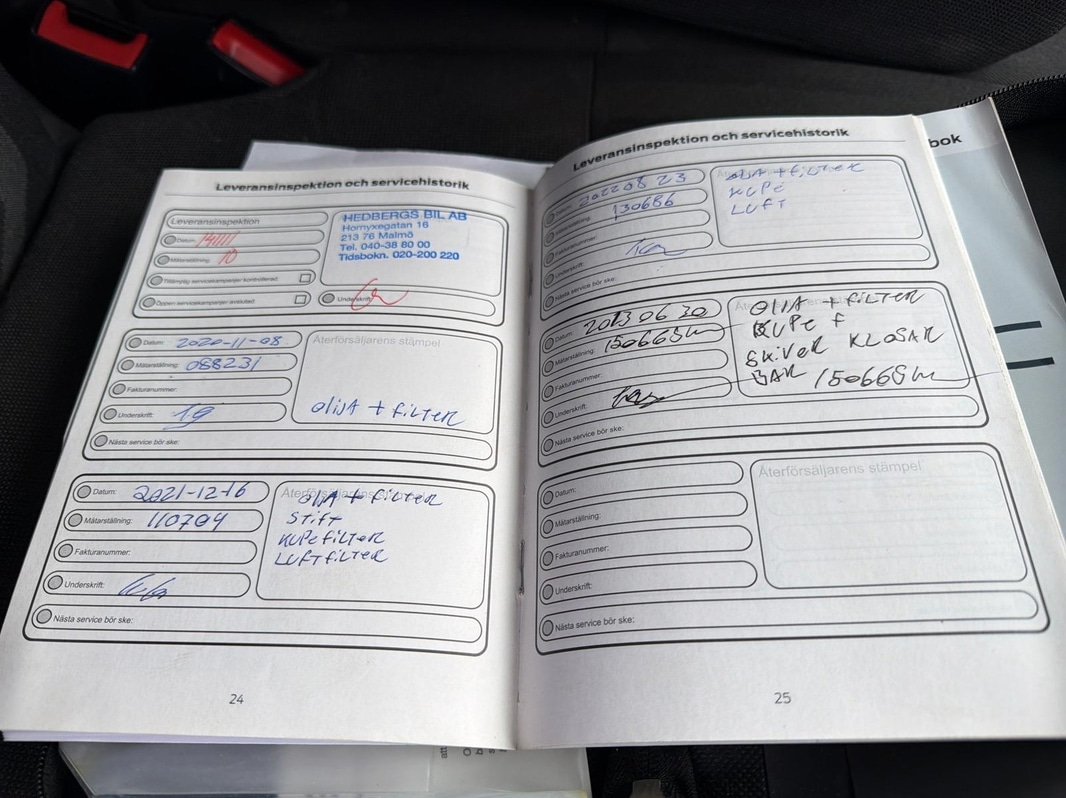 Leveransinspektion och servicehistorik
Leveransinspektion
Datum:
Mätarställning: 10
Tillämplig servicekampanjer kontrollerad:
Öppen servicekampanjer avslutad:
HEDBERGS BIL AB
Hornyxegatan 16
213 76 Malmö
Tel. 040-38 80 00
Tidsbokn. 020-200 220
Underskrift:
Datum: 2020-11-08
Mätarställning: 088231
Fakturanummer:
Underskrift:
Återförsäljarens stämpel
OliJA + FiLTER
Nästa service bör ske:
Datum: 2021-12-16
Mätarställning: 110704
Fakturanummer:
Underskrift:
Återförsäljarens stämpel
OliA + FiLTER
STiFT
KUPEFiLTER
LUFTFiLTER
Nästa service bör ske:
24
Leveransinspektion och servicehistorik
Datum: 20220823
Mätarställning: 130686
Fakturanummer:
Underskrift:
OliA + FiLTER
KUPE
LUFT
Nästa service bör ske:
Datum: 2023 06 20
Mätarställning: 150665
Fakturanummer:
Underskrift:
OliA + FiLTER
KUPE F
SKiVER KLOSAR
BAK 150665
Nästa service bör ske:
Datum:
Mätarställning:
Fakturanummer:
Underskrift:
Återförsäljarens stämpel
Nästa service bör ske:
25
bok